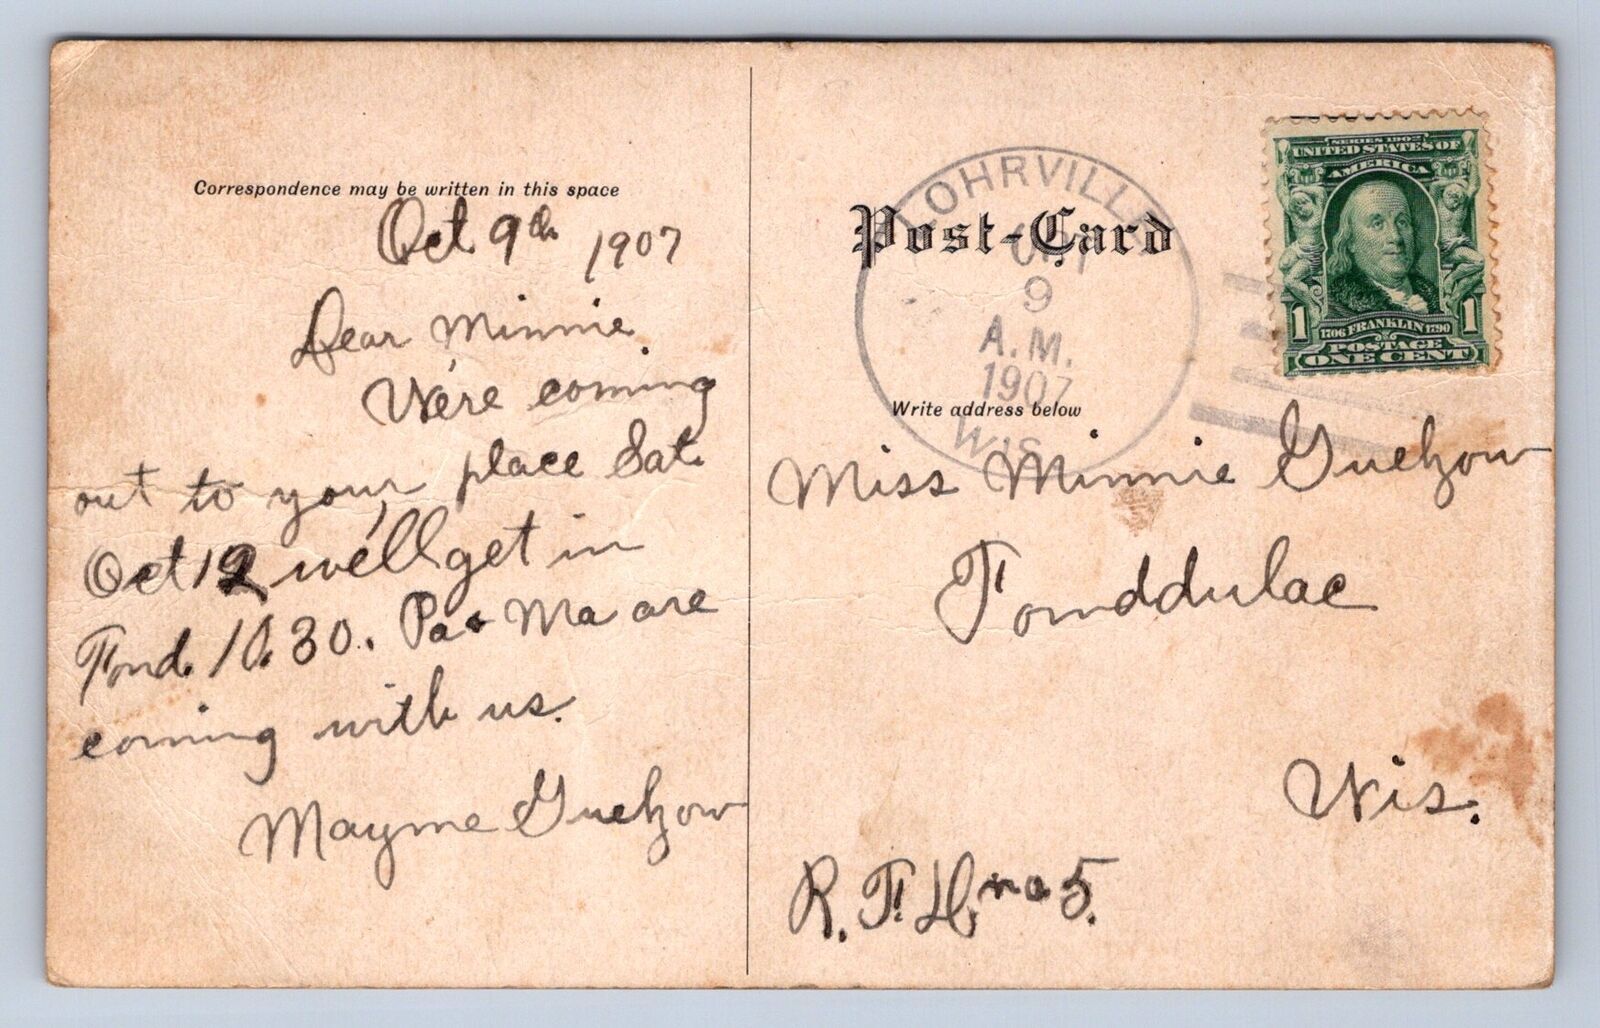 Correspondence may be written in this space
Oct 9th 1907
Dear Minnie.
We're coming
out to your place Sat.
Oct 12 we'll get in
Fond. 10.30. Pa & Ma are
coming with us.
Mayme Guelzow
Post-Card
LOHRVILLE
OCT
9
A.M.
1907
WIS.
Write address below
SERIES 1902
UNITED STATES OF
AMERICA
1706 FRANKLIN 1790
1 1
POSTAGE
ONE CENT
Miss Minnie Guelzow
Fonddulac
Wis.
R. F. D. no 5.